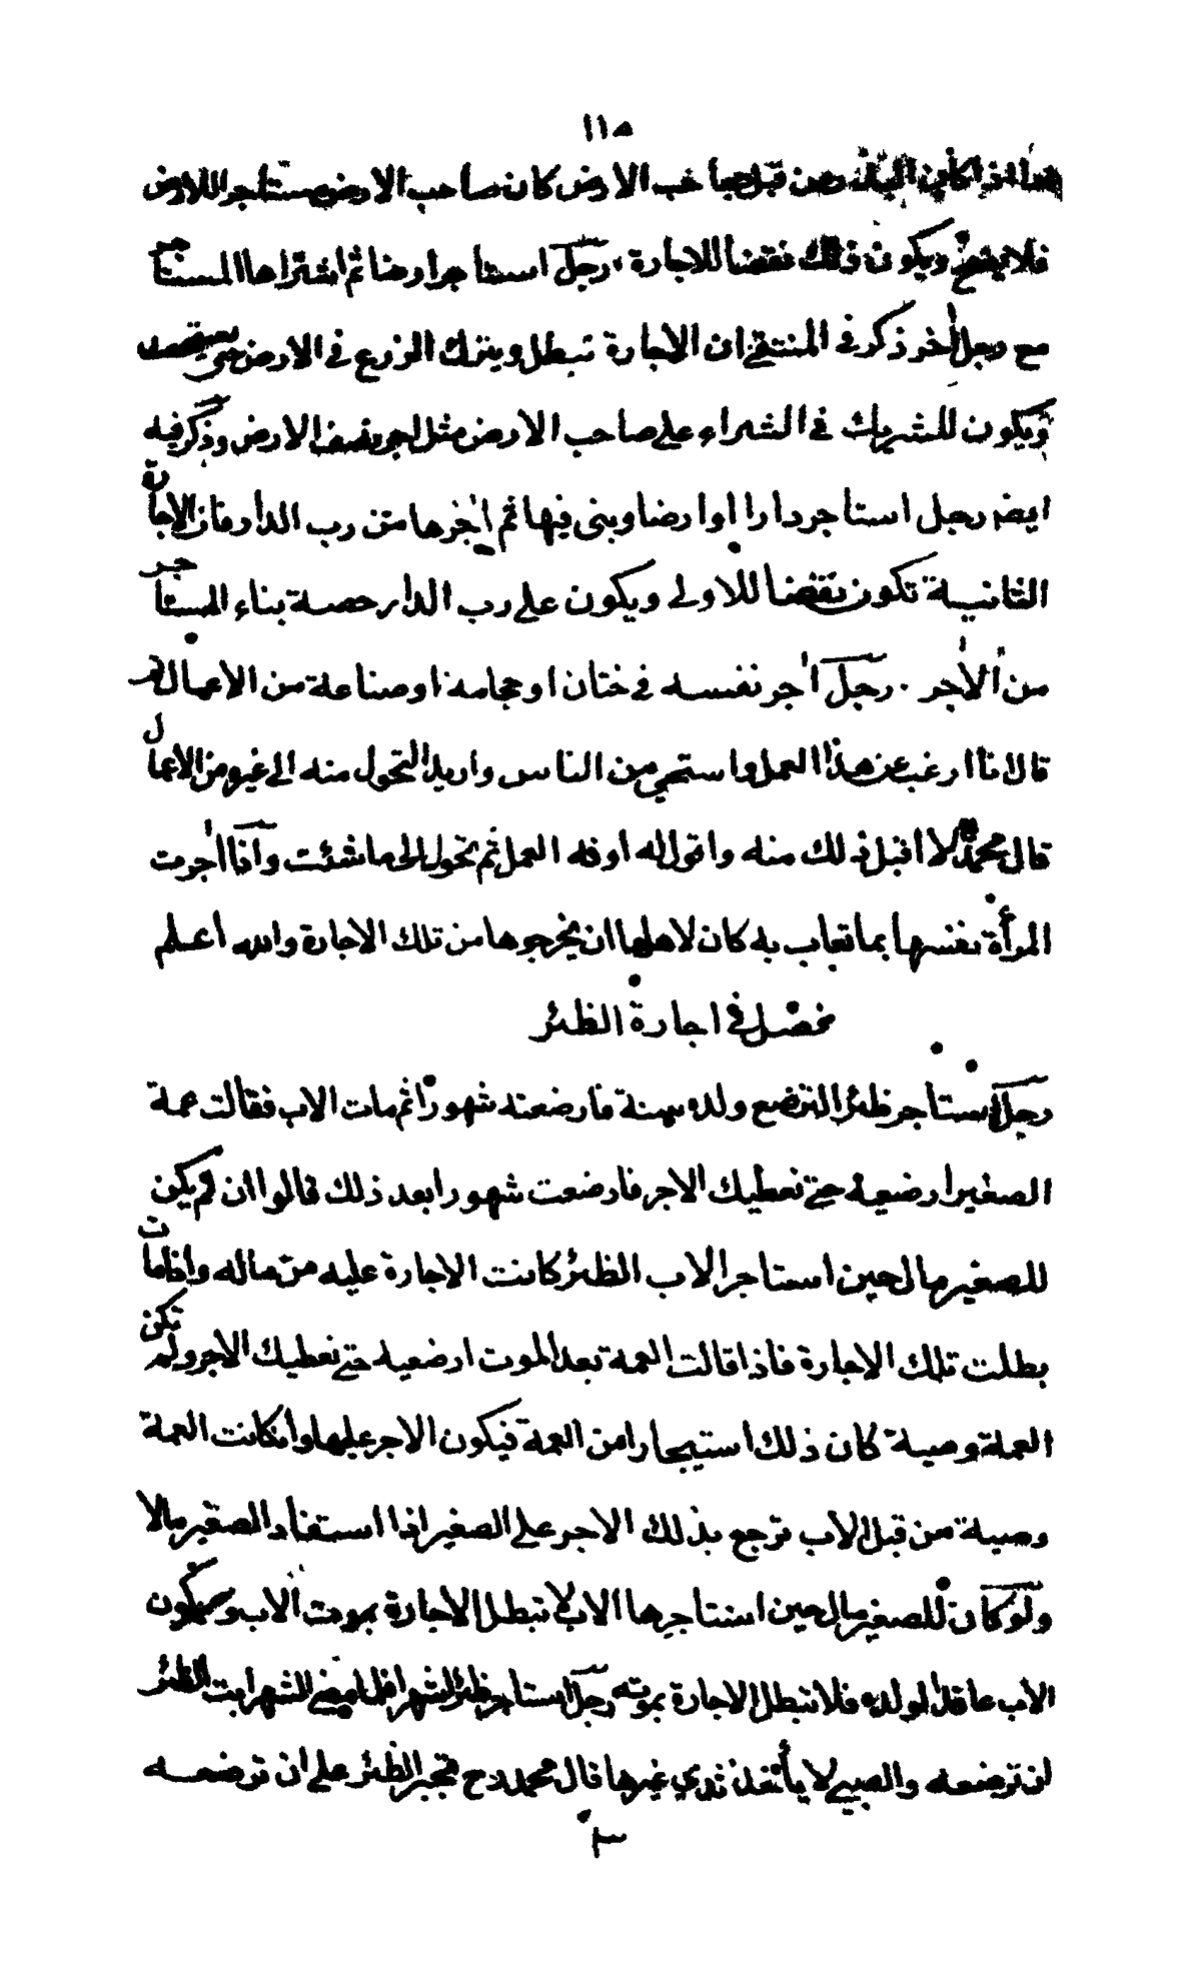 ١١٥
هذا اذا كان البناء من قبل صاحب الارض كان صاحب الارض مستاجرا للارض
فلا يصح ويكون ذلك نقضا للاجارة، رجل استاجر ارضا ثم اشتراها المستاجر
مع رجل اخر ذكر في المنتقى ان الاجارة تبطل ويترك الزرع في الارض حتى يستحصد
ويكون للشريك في الشراء على صاحب الارض مثل اجر نصف الارض وذكر فيه
ايضا رجل استاجر دارا او ارضا وبنى فيها ثم اٰجرها من رب الدار فان الاجارة
الثانية تكون نقضا للاولى ويكون على رب الدار حصة بناء المستاجر
من الاجر . رجل اٰجر نفسه في ختان او حجامة او صناعة من الاعمال
قال انا ارغب عن هذا العمل واستحي من الناس واريد التحول منه الى غيره من الاعمال
قال محمد لا اقبل ذلك منه واقول له اوفه العمل ثم تحول الى ما شئت وان اٰجرت
المرأة نفسها بما تعاب به كان لاهلها ان يخرجوها من تلك الاجارة والله اعلم
فصل في اجارة الظئر
رجل استاجر ظئرا لترضع ولده سنة فارضعته شهورا ثم مات الاب فقالت عمة
الصغير ارضعيه حتى نعطيك الاجر فارضعت شهورا بعد ذلك قالوا ان لم يكن
للصغير مال حين استاجر الاب الظئر كانت الاجارة عليه من ماله واذا مات
بطلت تلك الاجارة فاذا قالت العمة بعد الموت ارضعيه حتى نعطيك الاجر ولم تكن
العمة وصية كان ذلك استيجارا من العمة فيكون الاجر عليها وان كانت العمة
وصية من قبل الاب ترجع بذلك الاجر على الصغير اذا استفاد الصغير مالا
ولو كان للصغير مال حين استاجرها الاب لا تبطل الاجارة بموت الاب ويكون
الاب عاقدا لولده فلا تبطل الاجارة بموته رجل استاجر ظئرا شهرا فلما مضى الشهر ابت الظئر
ان ترضعه والصبي لا يأخذ ثدي غيرها قال محمد رح تجبر الظئر على ان ترضعه